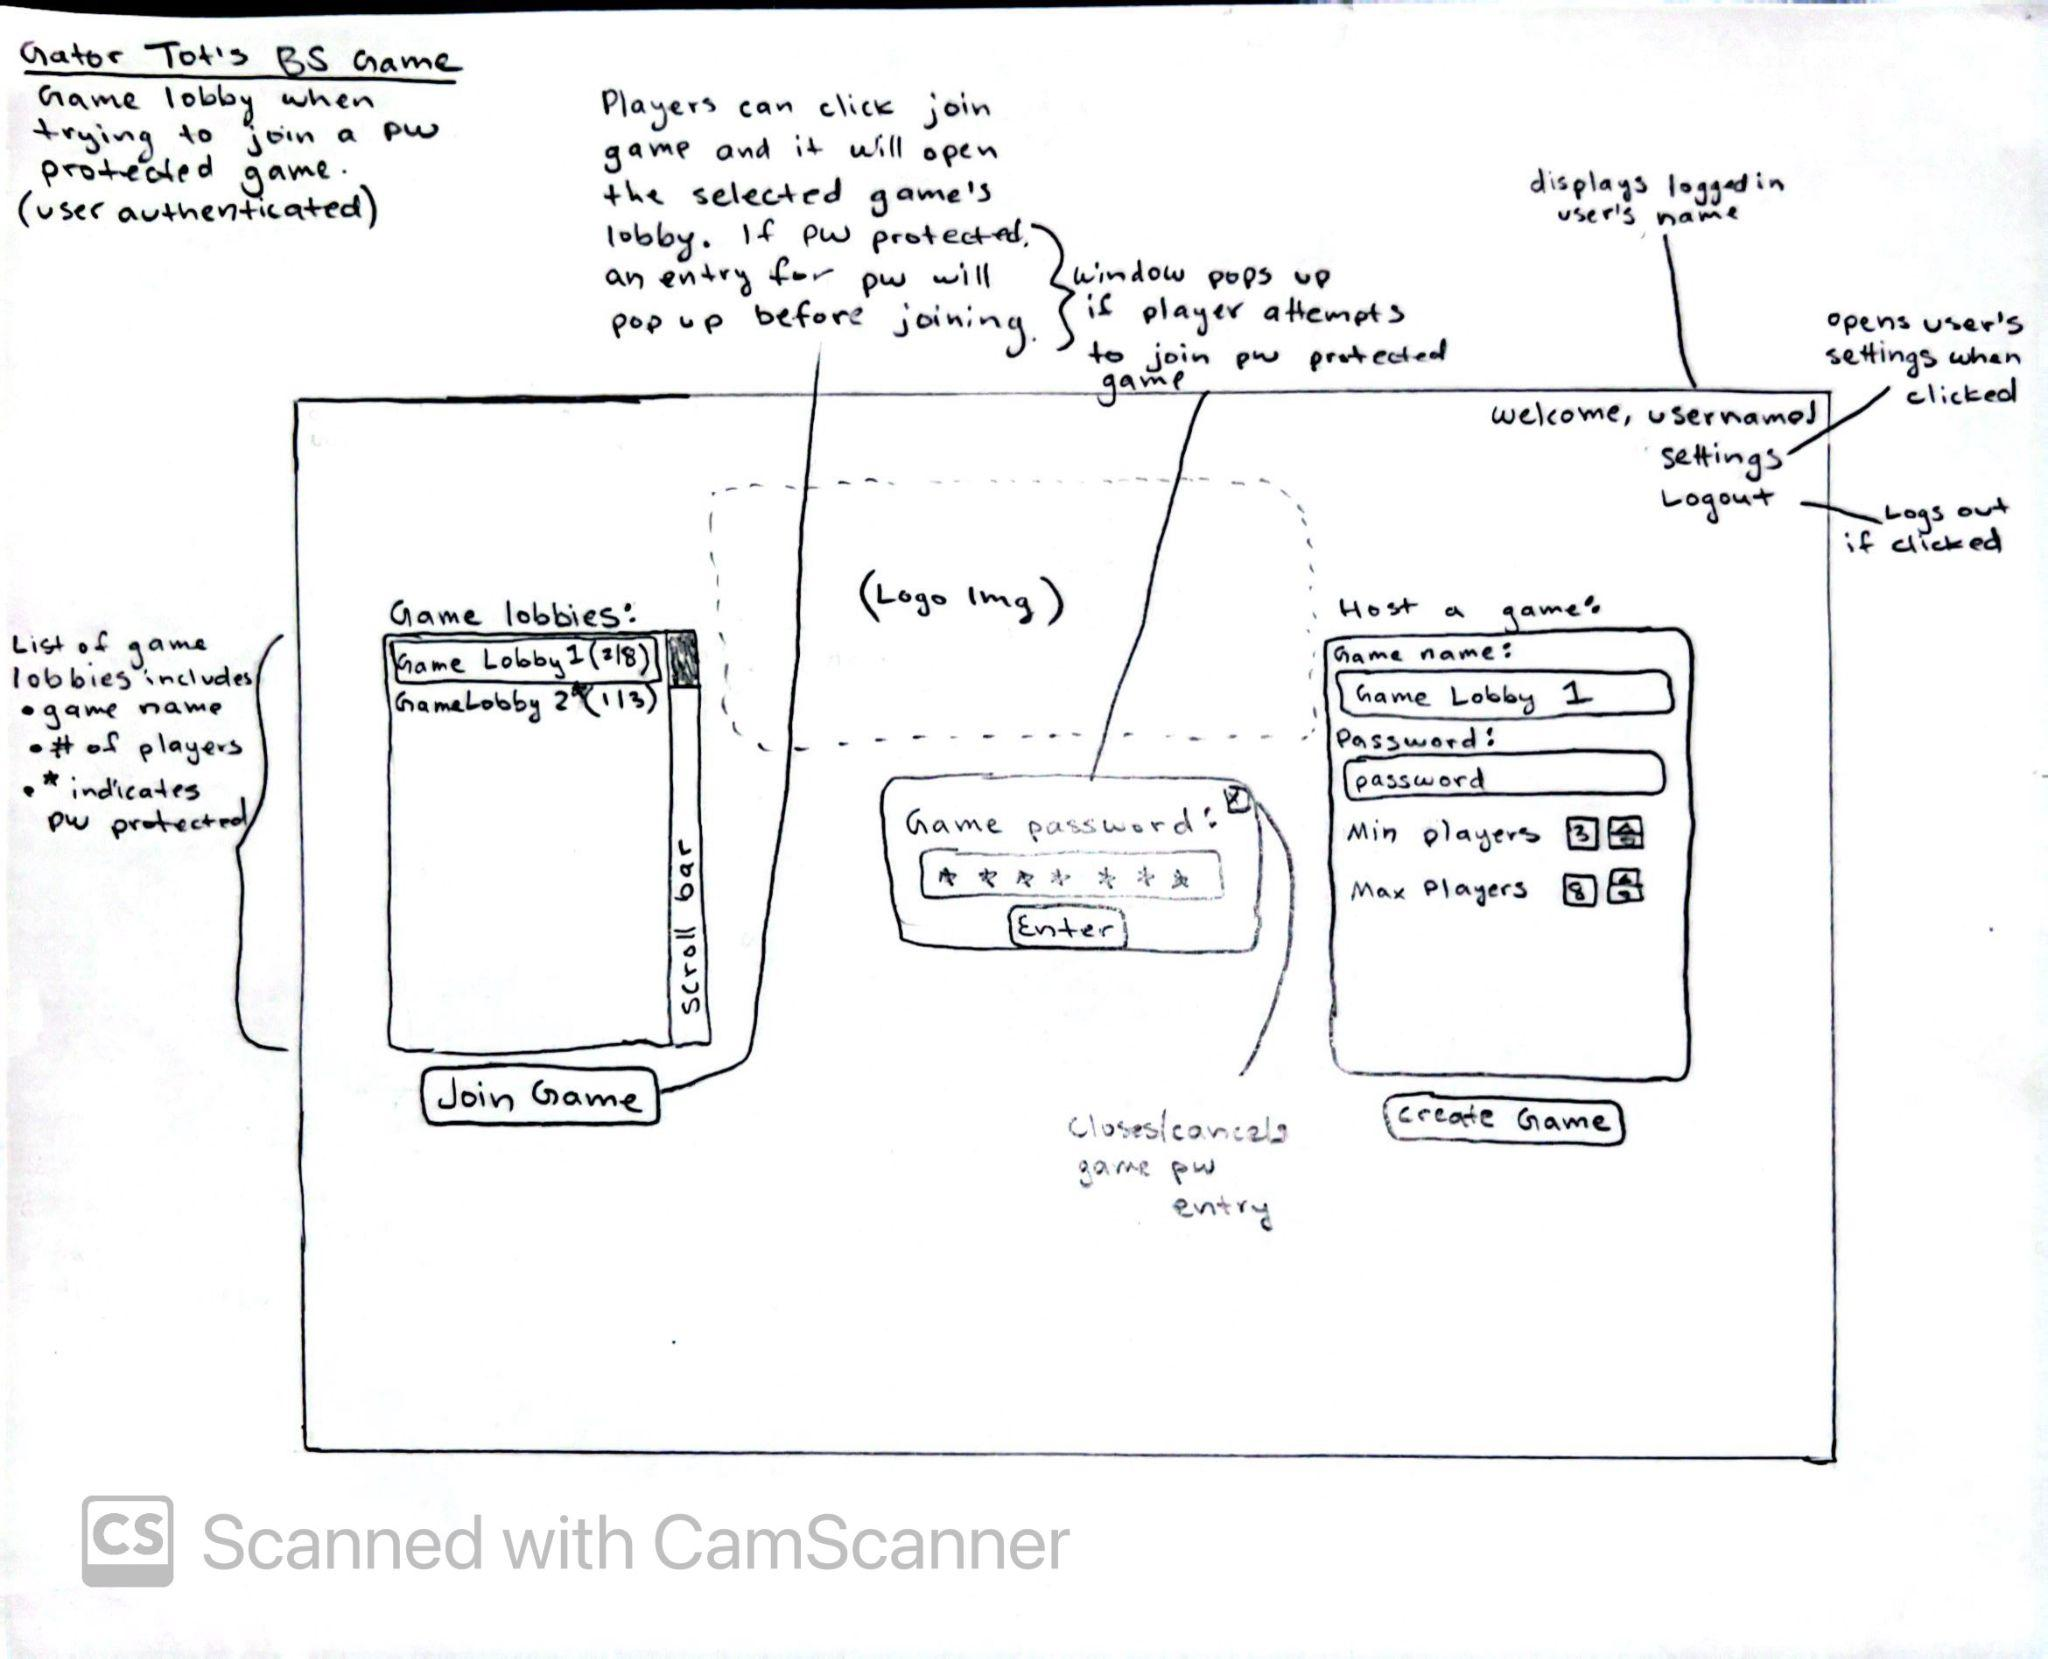 Gator Tot's BS Game
Game lobby when
trying to join a pw
protected game.
(user authenticated)
Players can click join
game and it will open
the selected game's
lobby. If pw protected,
an entry for pw will
pop up before joining.
window pops up
if player attempts
to join pw protected
game
displays logged in
user's name
opens user's
settings when
clicked
welcome, username!
settings
Logout
Logs out
if clicked
(Logo Img)
List of game
lobbies includes
• game name
• # of players
• * indicates
pw protected
Game lobbies:
Game Lobby 1 (2/8)
Game Lobby 2* (1/3)
scroll bar
Join Game
Game password: X
* * * * * * *
Enter
closes/cancels
game pw
entry
Host a game:
Game name:
Game Lobby 1
Password:
password
Min players 3
Max Players 8
Create Game
CS Scanned with CamScanner